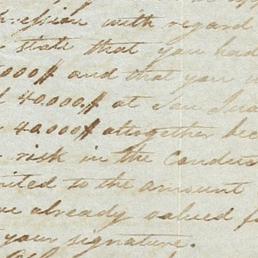 ression with regard
state that you had
000$ and that you
40.000$ at San Jua
40.000$ altogether bec
risk in the Conduc
mited to the amount
ve already valued f
your signature.